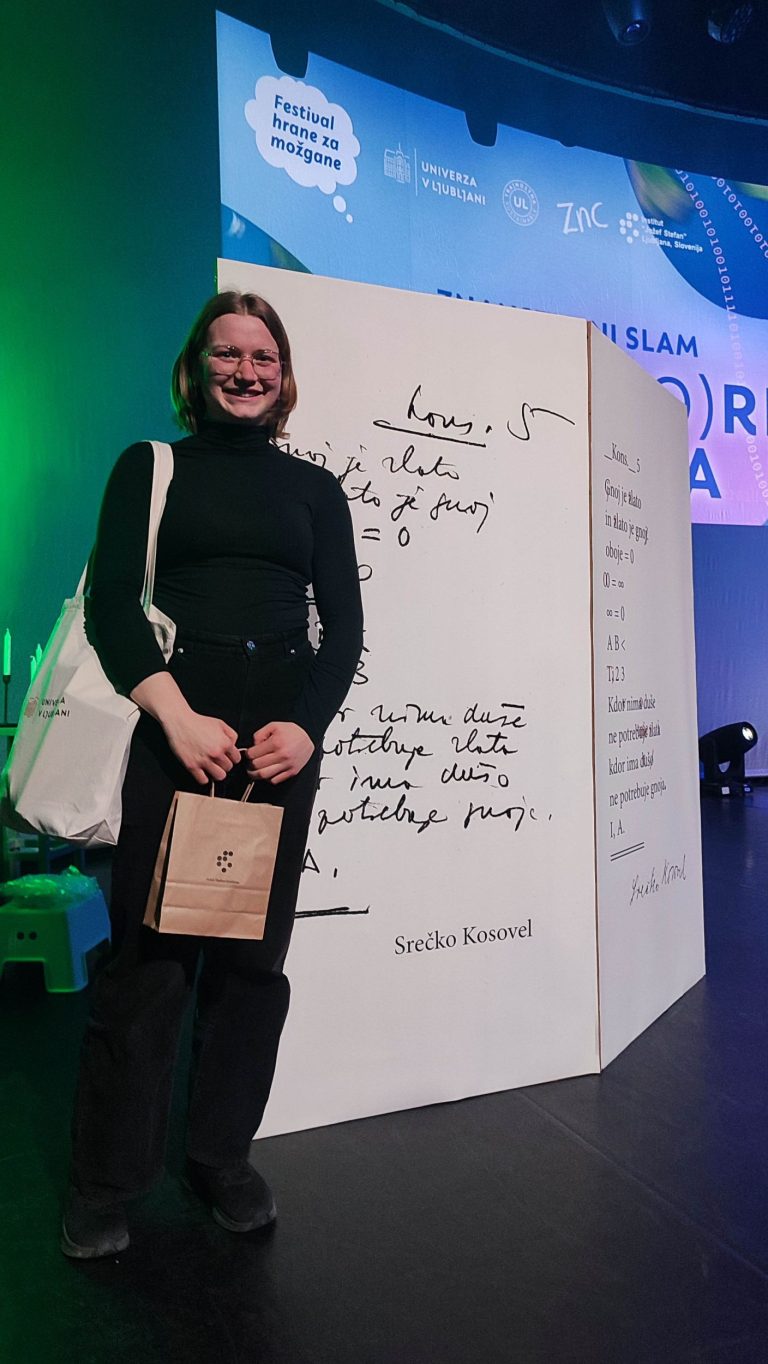 Festival
hrane za
možgane
UNIVERZA
V LJUBLJANI
UL
znc
Institut
"Jožef Stefan"
Ljubljana, Slovenija
SLAM
A
Kons. 5
noj je zlato
ato je gnoj
= 0
B
nima duše
potrebuje zlata
ima dušo
potrebuje gnoja.
A.
Srečko Kosovel
_Kons._ 5
Gnoj je zlato
in zlato je gnoj.
oboje = 0
0 = ∞
∞ = 0
A B <
1, 2 3
Kdor nima duše
ne potrebuje zlata
kdor ima dušo
ne potrebuje gnoja.
I, A.
Srečko Kosovel
UNIVERZA
V LJUBLJANI